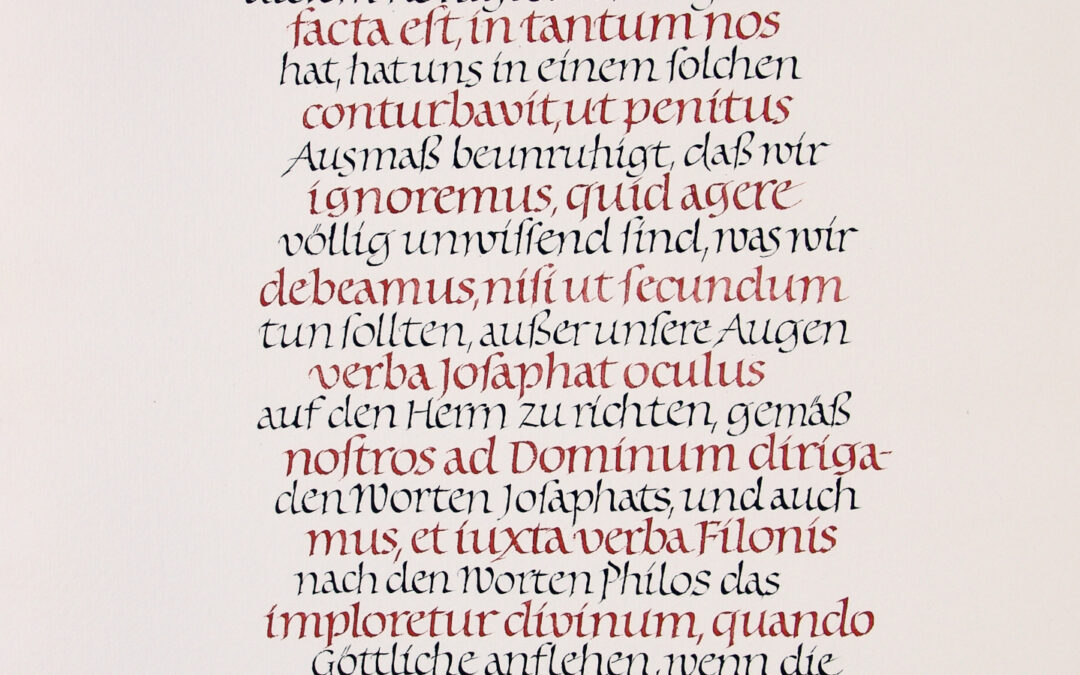 facta eſt, in tantum nos
hat, hat uns in einem ſolchen
conturbavit, ut penitus
Ausmaß beunruhigt, daß wir
ignoremus, quid agere
völlig unwiſſend ſind, was wir
debeamus, niſi ut ſecundum
tun ſollten, außer unſere Augen
verba Joſaphat oculus
auf den Herrn zu richten, gemäß
noſtros ad Dominum diriga-
den Worten Joſaphats, und auch
mus, et iuxta verba Filonis
nach den Worten Philos das
imploretur divinum, quando
Göttliche anflehen, wenn die